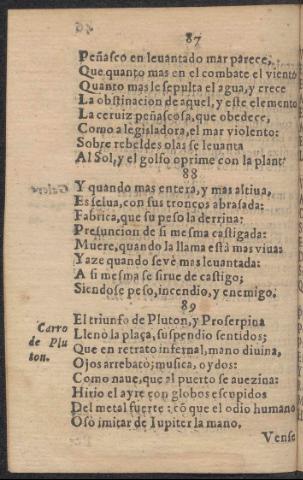 87
Peñasco en leuantado mar parece,
Que quanto mas en el combate el viento
Quanto mas le sepulta el agua, y crece
La obstinacion de aquel, y este elemento
La ceruiz peñascosa, que obedece,
Como a legisladora, el mar violento:
Sobre rebeldes olas se leuanta
Al Sol, y el golfo oprime con la plant
88
Y quando mas entera, y mas altiua,
Es selua, con sus troncos abrasada:
Fabrica, que su peso la derriua:
Presuncion de si mesma castigada:
Muere, quando la llama està mas viua:
Yaze quando se vè mas leuantada:
A si mesma se sirue de castigo;
Siendose peso, incendio, y enemigo.
89
Carro de Plu ton.
El triunfo de Pluton, y Proserpina
Llenò la plaça, suspendio sentidos;
Que en retrato infernal, mano diuina,
Ojos arrebatò; musica, oydos:
Como naue, que al puerto se auezina:
Hirio el ayre con globos escupidos
Del metal fuerte: cõ que el odio humano
Osò imitar de Iupiter la mano.
Vense